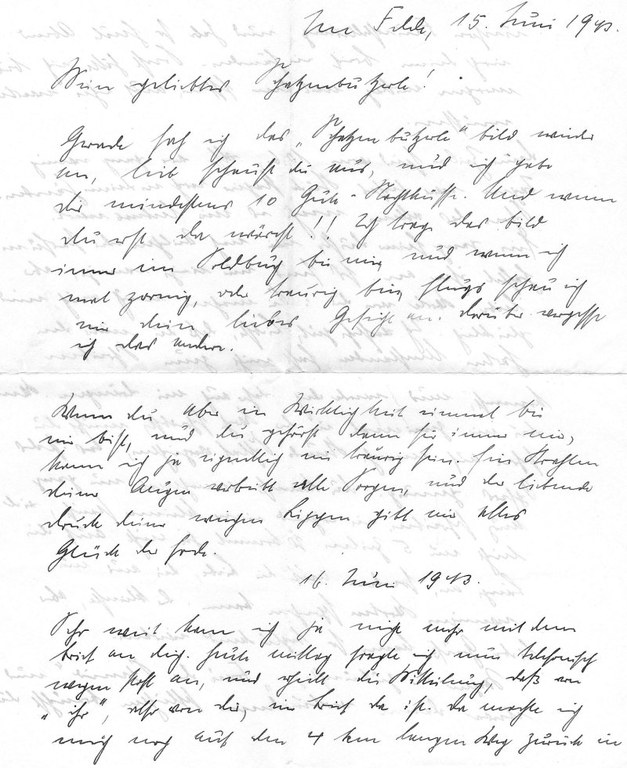 Im Felde, 15. Juni 1943.
Mein geliebtes Schatzenbutzerle!
Gerade sah ich das „Schatzenbutzerle“ bild wieder
an, lieb schaust du aus, und ich gebe
dir mindestens 10 Gute-Nachtküsse. Und wenn
du erst da wärst!! Ich trage das bild
immer im Soldbuch bei mir und wenn ich
mal zornig, oder traurig bin, flugs schau ich
mir dein liebes Gesicht an. darüber vergesse
ich das andere.
Wenn du aber in Wirklichkeit einmal bei
mir bist, und du gehörst dann für immer mir,
kann ich ja eigentlich nie traurig sein. Ein Strahlen
deiner Augen vertreibt alle Sorgen, und der liebende
druck deiner weichen Lippen gibt mir alles
Glück der Erde.
16. Juni 1943.
Sehr weit kam ich ja nicht mehr mit dem
brief an dich. heute mittag fragte ich nun telefonisch
wegen Post an, und erhielt die Mitteilung, daß von
„ihr“, also von dir, ein brief da ist. da machte ich
mich noch auf den 4 km langen Weg zurück in